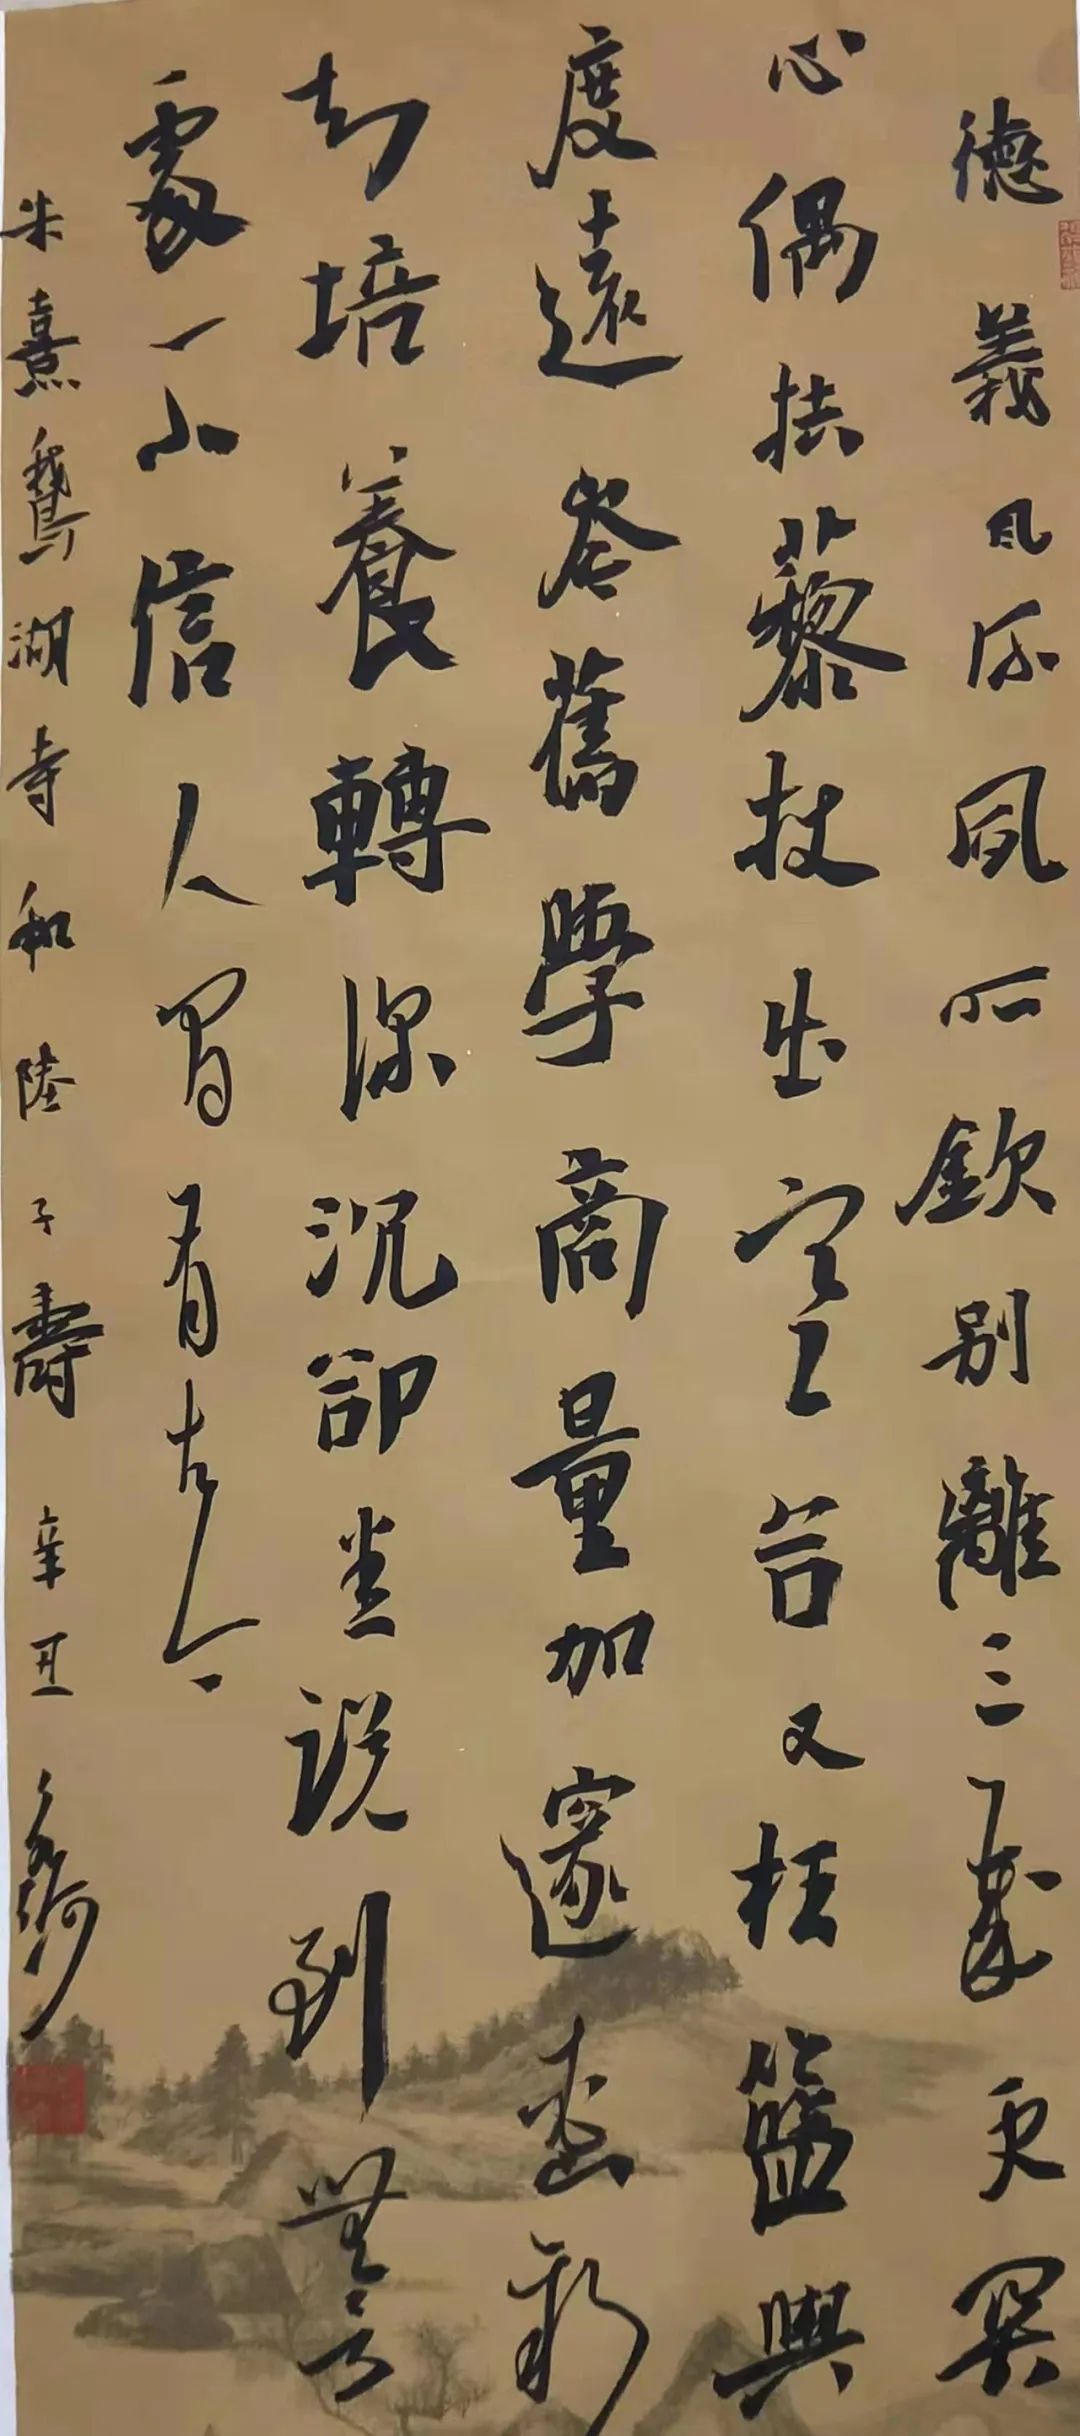 德義風流夙所欽别離三載更関
心偶扶藜杖出空谷又枉籃輿
度遠岑舊學商量加邃密新
知培養轉深沉卻愁説到無言
處不信人間有古今
朱熹鵝湖寺和陸子壽 辛丑